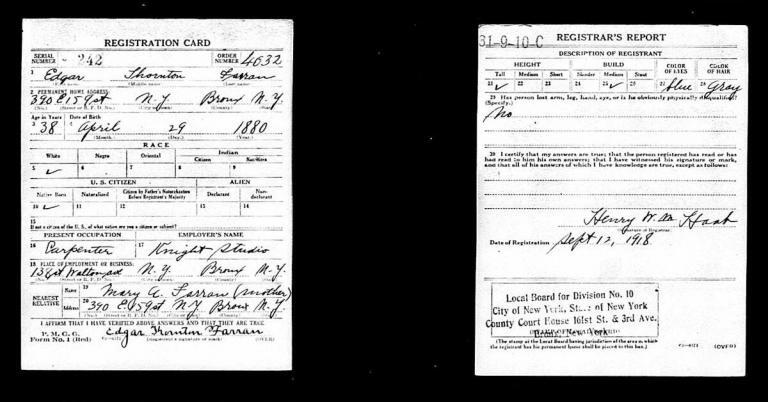 REGISTRATION CARD
SERIAL NUMBER 242 ORDER NUMBER 4632
1 Edgar Thornton Farran
2 PERMANENT HOME ADDRESS:
390 E 159 st N.Y. Bronx N.Y.
(No.) (Street or R. F. D. No.) (City or town) (County) (State)
Age in Years Date of Birth
3 38 4 April 29 1880
(Month.) (Day.) (Year.)
RACE
White Negro Oriental Indian
Citizen Noncitizen
5 ✓ 6 7 8 9
U. S. CITIZEN ALIEN
Native Born Naturalized Citizen by Father's Naturalization Before Registrant's Majority Declarant Non-declarant
10 ✓ 11 12 13 14
15
If not a citizen of the U. S., of what nation are you a citizen or subject?
PRESENT OCCUPATION EMPLOYER'S NAME
16 Carpenter 17 Knight Studio
18 PLACE OF EMPLOYMENT OR BUSINESS:
N.Y. Bronx N.Y.
(No.) (Street or R. F. D. No.) (City or town) (County) (State)
NEAREST RELATIVE Name 19 Mary A. Farran (mother)
Address 20 390 E 159 st N.Y. Bronx N.Y.
(No.) (Street or R. F. D. No.) (City or town) (County) (State)
I AFFIRM THAT I HAVE VERIFIED ABOVE ANSWERS AND THAT THEY ARE TRUE
P. M. G. O.
Form No. 1 (Red) Edgar Thornton Farran
(Registrant's signature or mark) (OVER)
31-9-10-C REGISTRAR'S REPORT
DESCRIPTION OF REGISTRANT
HEIGHT BUILD COLOR OF EYES COLOR OF HAIR
Tall Medium Short Slender Medium Stout
21 ✓ 22 23 24 25 ✓ 26 27 blue 28 Gray
29 Has person lost arm, leg, hand, eye, or is he obviously physically disqualified?
(Specify.)
No
30 I certify that my answers are true; that the person registered has read or has
had read to him his own answers; that I have witnessed his signature or mark,
and that all of his answers of which I have knowledge are true, except as follows:
Henry W.
(Signature of Registrar)
Date of Registration Sept 12, 1918
Local Board for Division No. 10
City of New York, State of New York
County Court House 161st St. & 3rd Ave.
Bronx, New York
(The stamp of the Local Board having jurisdiction of the area in which
the registrant has his permanent home shall be placed in this box.)
(OVER)